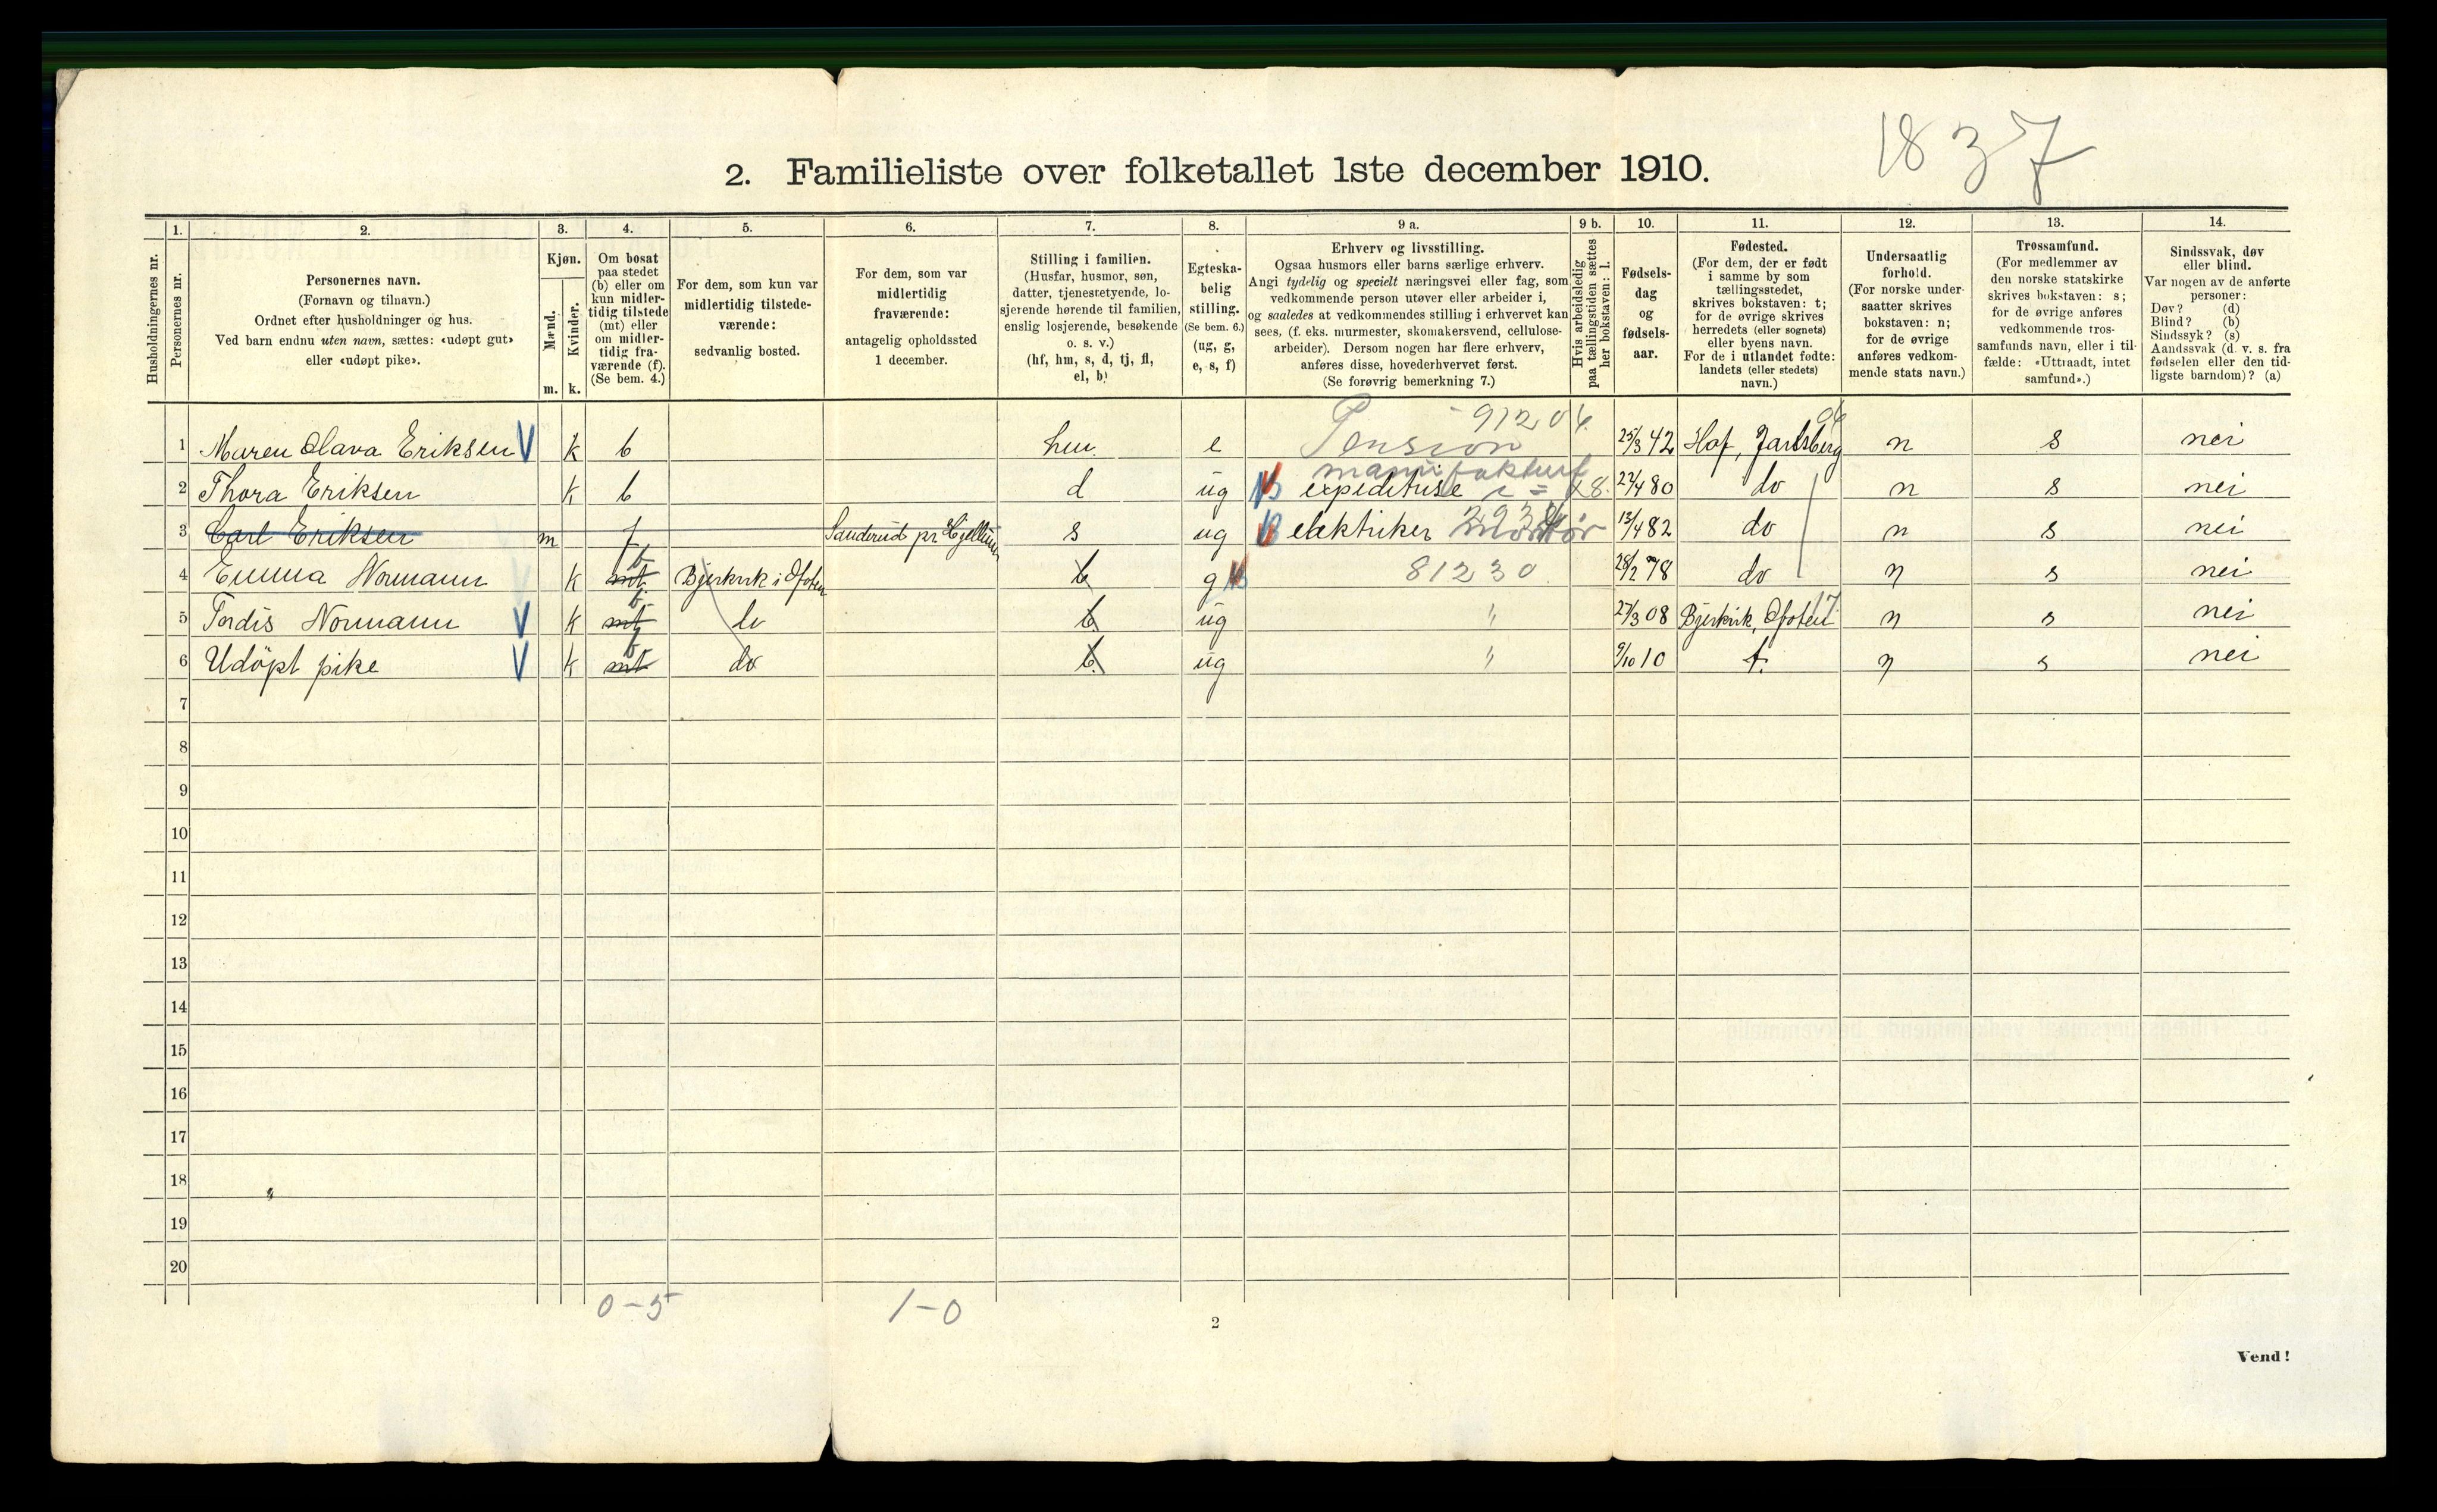 1837
2. Familieliste over folketallet 1ste december 1910.
Husholdningernes nr.
1. Personernes nr.
2. Personernes navn. (Fornavn og tilnavn.) Ordnet efter husholdninger og hus. Ved barn endnu uten navn, sættes: «udøpt gut» eller «udøpt pike».
3. Kjøn. Mænd. m. Kvinder. k.
4. Om bosat paa stedet (b) eller om kun midlertidig tilstede (mt) eller om midlertidig fraværende (f). (Se bem. 4.)
5. For dem, som kun var midlertidig tilstedeværende: sedvanlig bosted.
6. For dem, som var midlertidig fraværende: antagelig opholdssted 1 december.
7. Stilling i familien. (Husfar, husmor, søn, datter, tjenestetyende, losjerende hørende til familien, enslig losjerende, besøkende o. s. v.) (hf, hm, s, d, tj, fl, el, b)
8. Egteskabelig stilling. (Se bem. 6.) (ug, g, e, s, f)
9 a. Erhverv og livsstilling. Ogsaa husmors eller barns særlige erhverv. Angi tydelig og specielt næringsvei eller fag, som vedkommende person utøver eller arbeider i, og saaledes at vedkommendes stilling i erhvervet kan sees, (f. eks. murmester, skomakersvend, cellulosearbeider). Dersom nogen har flere erhverv, anføres disse, hovederhvervet først. (Se forøvrig bemerkning 7.)
9 b. Hvis arbeidsledig paa tællingstiden sættes her bokstaven: l.
10. Fødselsdag og fødselsaar.
11. Fødested. (For dem, der er født i samme by som tællingsstedet, skrives bokstaven: t; for de øvrige skrives herredets (eller sognets) eller byens navn. For de i utlandet fødte: landets (eller stedets) navn.)
12. Undersaatlig forhold. (For norske undersaatter skrives bokstaven: n; for de øvrige anføres vedkommende stats navn.)
13. Trossamfund. (For medlemmer av den norske statskirke skrives bokstaven: s; for de øvrige anføres vedkommende trossamfunds navn, eller i tilfælde: «Uttraadt, intet samfund».)
14. Sindssvak, døv eller blind. Var nogen av de anførte personer: Døv? (d) Blind? (b) Sindssyk? (s) Aandssvak (d. v. s. fra fødselen eller den tidligste barndom)? (a)
1 Maren Olava Eriksen V k b hm. e Pension 9120 25/3 42 Hof, Jarlsberg n s nei
2 Thora Eriksen k b d ug expeditrise i manufaktur 24/4 80 do n s nei
3 Carl Eriksen m f Sanderud pr Hjellum s ug elektriker montør 13/4 82 do n s nei
4 Emma Normann k mt b Bjerkvik i Ofoten b g 81230 28/2 78 do n s nei
5 Tordis Normann V k mt b do b ug " 27/3 08 Bjerkvik, Ofoten n s nei
6 Udöpt pike V k mt b do b ug " 9/10 10 t. n s nei
7
8
9
10
11
12
13
14
15
16
17
18
19
20
0-5 1-0
2
Vend!